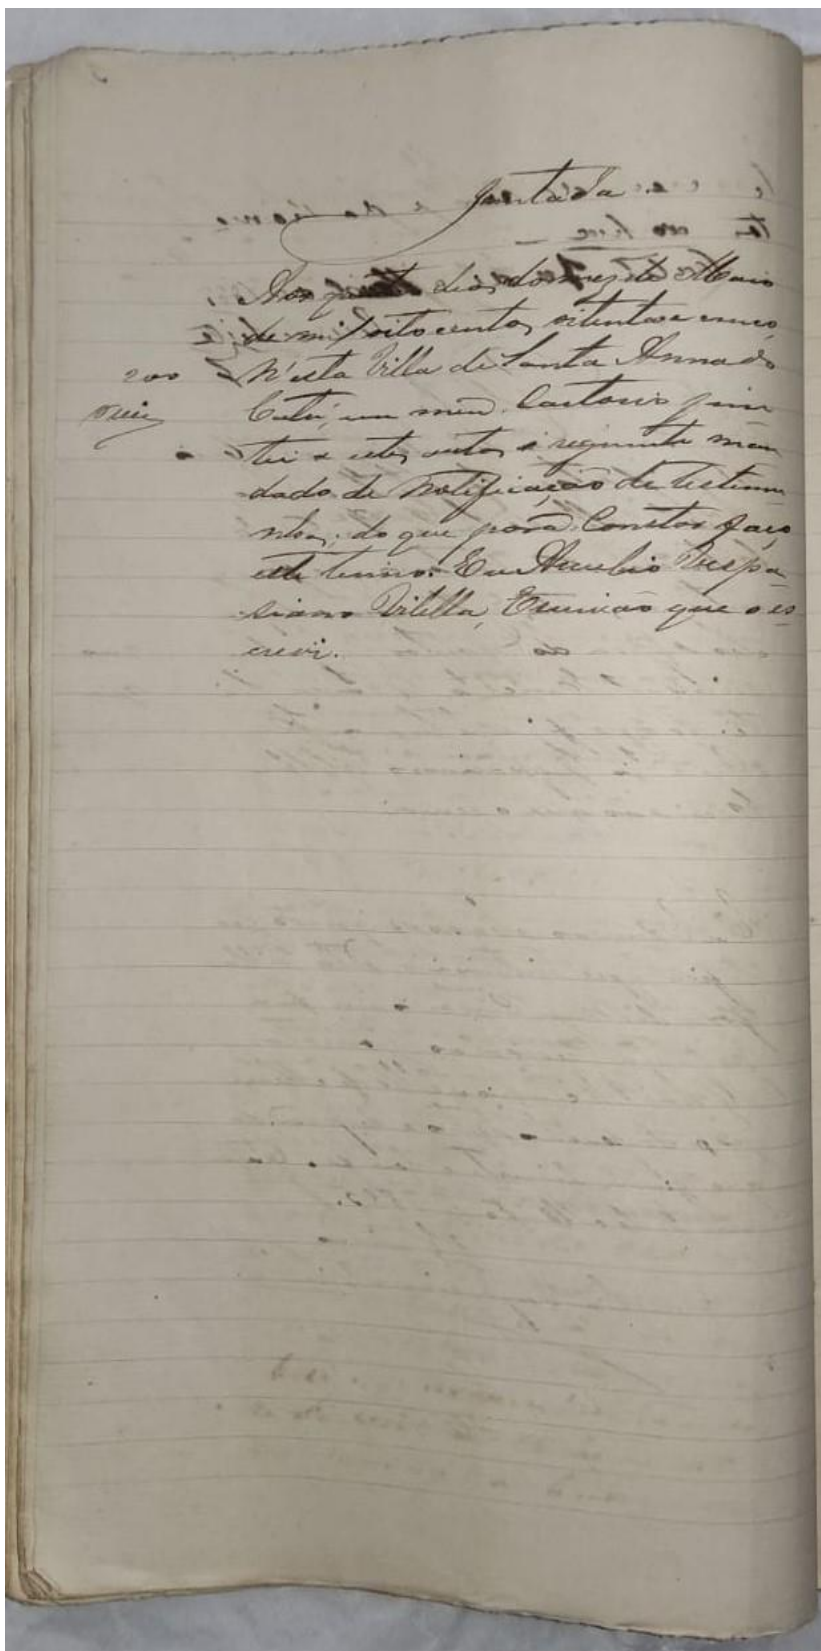 Juntada.
Aos dias do mez de Maio
de mil oito centos setenta e cinco,
N'esta Villa de Santa Anna do
200
Catú, em meu Cartorio jun
tei a estes autos o seguinte man
dado de Notificação de testemu
nhas; do que para constar faço
este termo. Eu Vespa-
siano Vilella, Escrivão que o es
crevi.